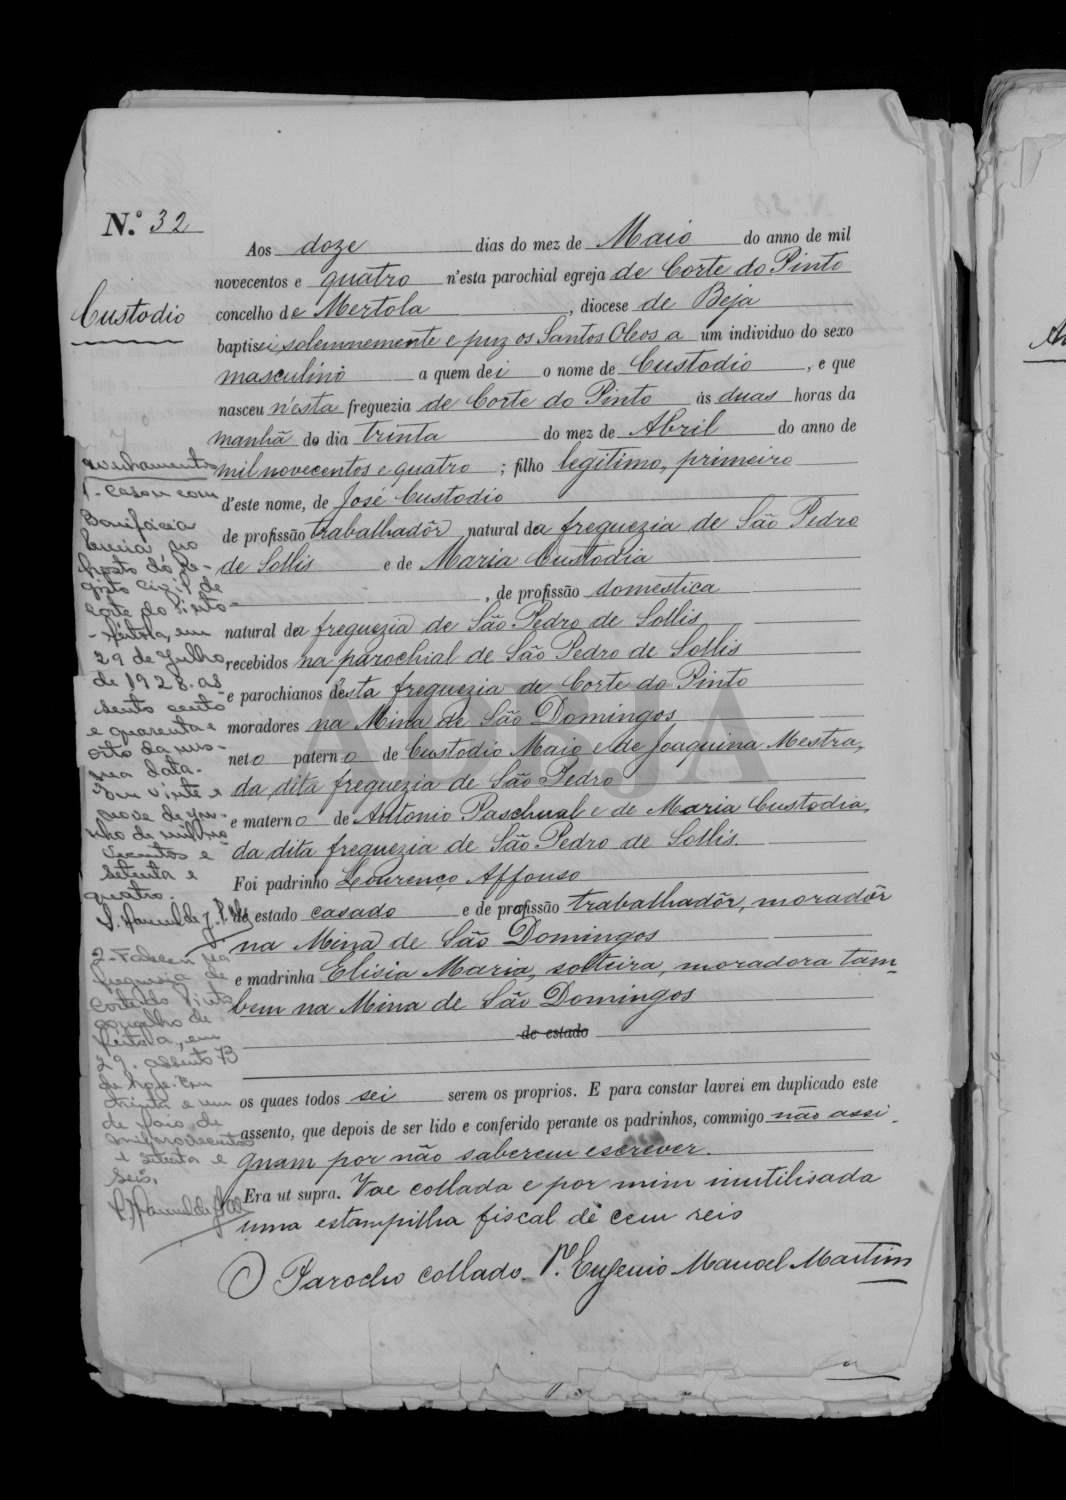 N.º 32
Custodio
Aos doze dias do mez de Maio do anno de mil
novecentos e quatro n'esta parochial egreja de Corte do Pinto
concelho de Mertola, diocese de Beja
baptisei solemnemente e puz os Santos Oleos a um individuo do sexo
masculino a quem dei o nome de Custodio, e que
nasceu n'esta freguezia de Corte do Pinto ás duas horas da
manhã do dia trinta do mez de Abril do anno de
mil novecentos e quatro; filho legitimo, primeiro
d'este nome, de José Custodio
de profissão trabalhadôr natural da freguezia de São Pedro
de Sollis e de Maria Custodia
, de profissão domestica
natural da freguezia de São Pedro de Sollis
recebidos na parochial de São Pedro de Sollis
e parochianos d'esta freguezia de Corte do Pinto
moradores na Mina de São Domingos,
neto paterno de Custodio Maio e de Joaquina Mestra,
da dita freguezia de São Pedro
e materno de Antonio Paschoal e de Maria Custodia,
da dita freguezia de São Pedro de Sollis.
Foi padrinho Lourenço Affonso
de estado casado e de profissão trabalhadôr, moradôr
na Mina de São Domingos
e madrinha Elisia Maria, solteira, moradora tam-
bem na Mina de São Domingos
de estado
os quaes todos sei serem os proprios. E para constar lavrei em duplicado este
assento, que depois de ser lido e conferido perante os padrinhos, commigo não assi-
gnam por não saberem escrever.
Era ut supra. Vae collada e por mim inutilisada
uma estampilha fiscal de cem reis
O Parocho collado P.e Eugenio Manoel Martins
Averbamentos
1- Casou com
Bonifacia
Lucia, no
Posto do Re-
gisto Civil de
Corte do Pinto-
- Mértola, em
29 de Julho
de 1928. as
sento cento
e quarenta e
oito da mes-
ma data.
Em vinte e
nove de ju-
nho de mil no
vecentos e
setenta e
quatro.
2- Faleceu na
freguesia de
Corte do Pinto
concelho de
Mértola, em
29. assento 73
de hoje. Em
trinta e um
de Maio de
mil novecentos
e setenta e
seis.
ADBJA